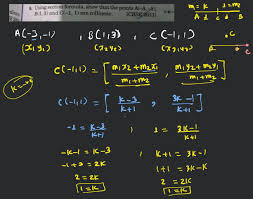 m₁ = k 1 = m₂
A C B
Using section formula, show that the points A(-3, -1),
B(1, 3) and C(-1, 1) are collinear.
A(-3,-1) , B(1,3) , C(-1,1)
(x₁y₁) (x₂y₂)
C(-1,1) = [ m₁x₂+m₂x₁ / m₁+m₂ , m₁y₂+m₂y₁ / m₁+m₂ ]
C(-1,1) = [ k-3 / k+1 , 3k-1 / k+1 ]
-1 = k-3 / k+1 , 1 = 3k-1 / k+1
-k-1 = k-3 k+1 = 3k-1
-1+3 = 2k 1+1 = 3k-k
2 = 2k 2 = 2k
1 = k 1 = k